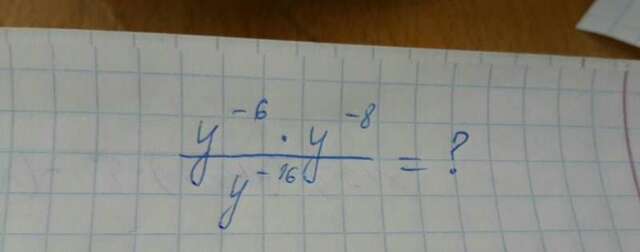 y⁻⁶ · y⁻⁸
y⁻¹⁶ = ?